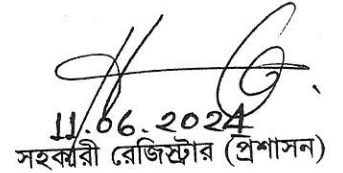 11.06.2024
সহকারী রেজিস্ট্রার (প্রশাসন)